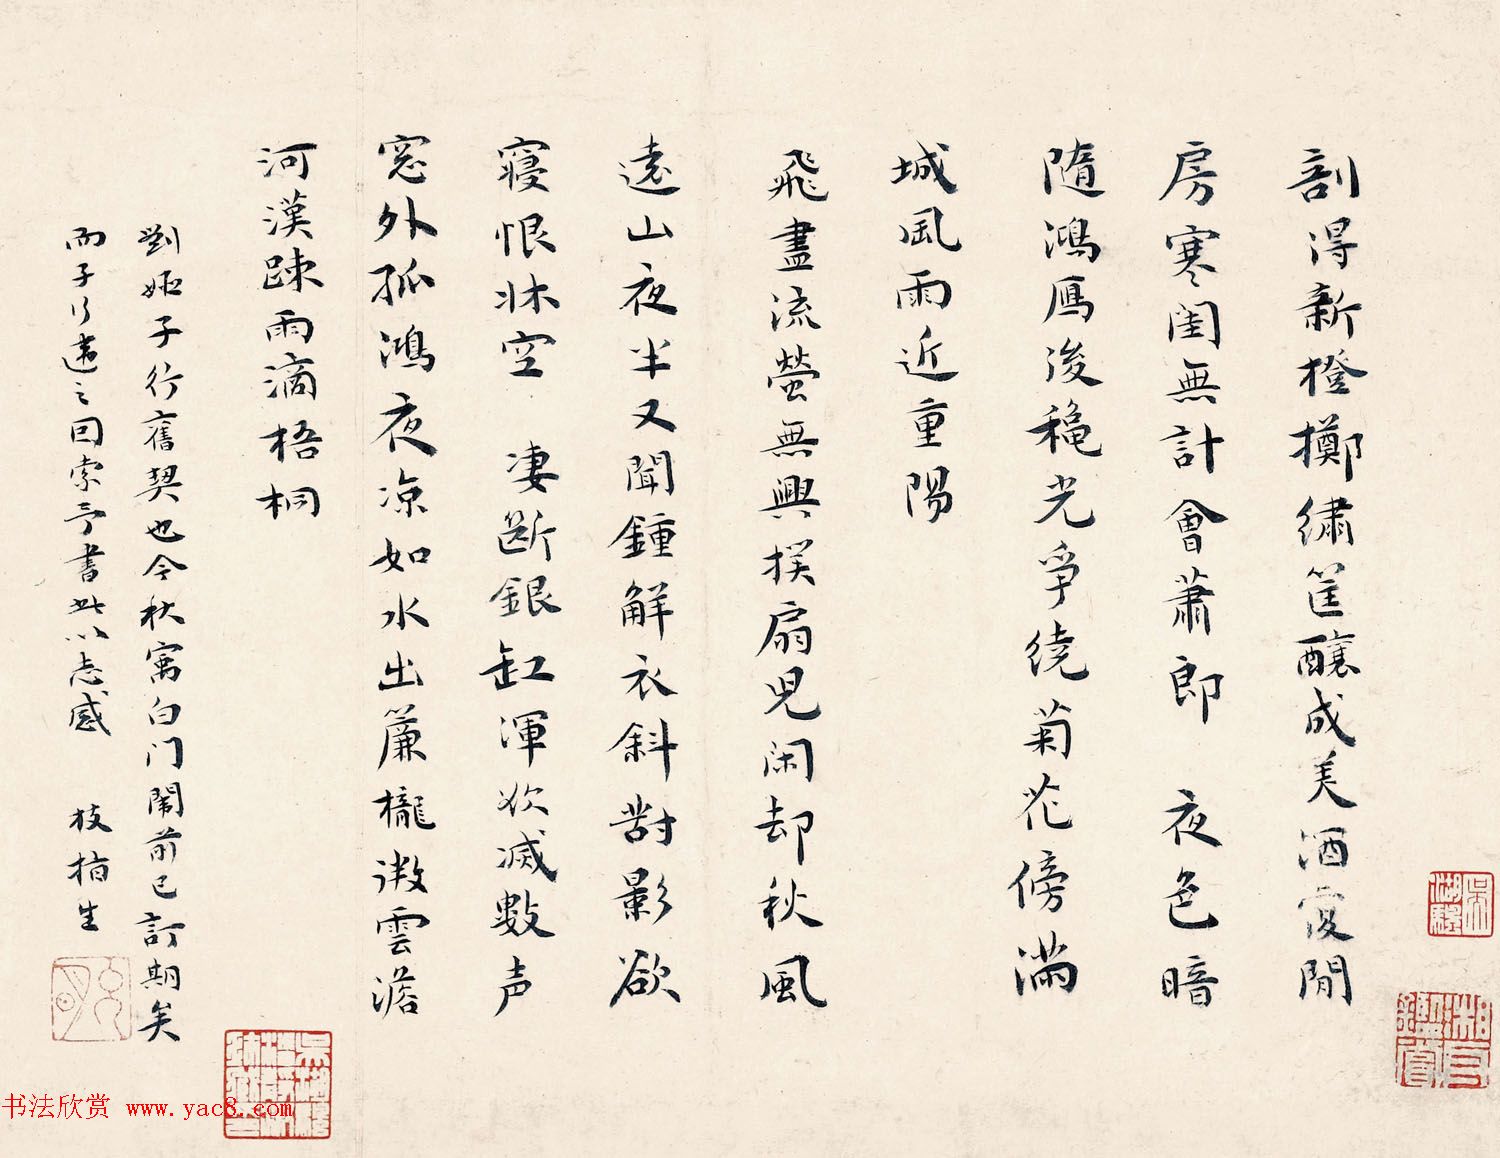 剖得新橙擲繡筐釀成美酒復閒
房寒閨無計會蕭郎 夜色暗
隨鴻鴈後穐光爭繞菊花傍滿
城風雨近重陽
飛盡流螢無興撲扇兒閑却秋風
遠山夜半又聞鍾解衣斜對影欲
寢恨牀空 淒斷銀缸渾欲滅數声
窓外孤鴻夜凉如水出簾櫳微雲澹
河漢踈雨滴梧桐
劉姬子行舊契也今秋寓白门鬧前已訂期矣
而子行違之因索予書此以志感 枝指生
书法欣赏 www.yac8.com